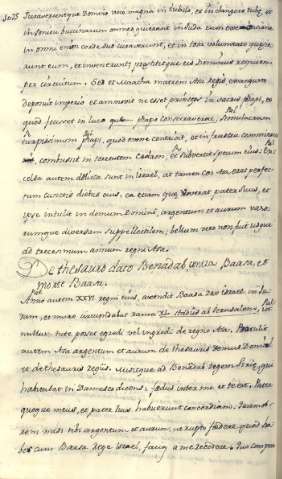 Juraveruntque Domino voce magna in Jubilo, et in clangore tubæ, et
in sonitu buccinarum omnes qui erant in Juda cum
in omni enim corde suo juraverunt, et in tota voluntate quæsie
runt eum, et invenerunt, præstititque eis Dominus requiem
per circuitum. Sed et Maacha matrem Asa regis ex augusto
deposuit imperio et ammovit ne esset princeps in sacris Priapi, et
quod fecisset in luco quem Priapo consecraverat, Simulacrum
turpissimum quod omne contrivit, et in frusta
combussit in torrentem Cedron, et subvertit specum eius: Ex
celsa autem sunt in israel, at tamen cor Asa erat perfec
tum cunctis diebus suis, ea etiam quæ voverat pater suus, et
ipse intulit in domum Domini, argentum et aurum vaso
rumque diversam suppellectilem, bellum vero non fuit usque
ad annum regni Asa.
De thesauro dato Benadab contra Baasa, et
morte Baasa.
Anno autem XXXVI regni eius, ascendit Baasa Rex israel in Ju
dam, et muro circundabat Rama
nullus tute posset egredi vel ingredi de regno Asa. Protulit
autem Asa argentum et aurum de thesauris Domus Domini
et de thesauris regis. Misitque ad Benadab Regem Siriæ, qui
habitabat in Damasco dicens: fœdus inter me et te est, Pater
quoque meus, et pater tuus habuerunt concordiam.
misi tibi argentum et aurum, ut rupto fœdere quod ha
bes cum Baasa Rege israel, facias a me recedere. Quo comper